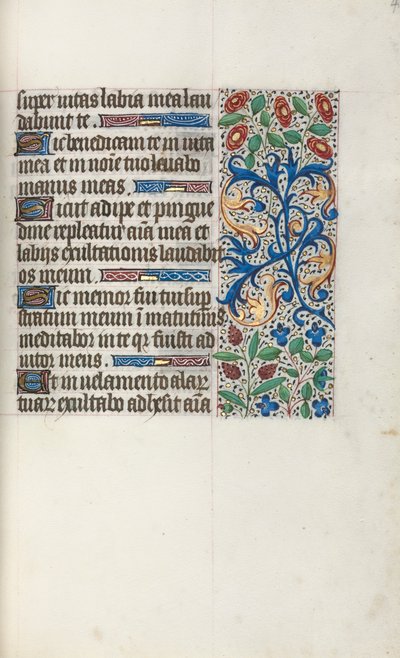 super uitas labia mea lau
dabunt te.
Sic benedicam te in uita
mea et in noīe tuo leuabo
manus meas.
Sicut adipe et pingue
dine repleatur aīa mea et
labijs exultationis laudabit
os meum.
Sic memor fui tui sup
stratum meum ī matutinis
meditabor in te qr fuisti ad
iutor meus.
Et in uelamento alarꝝ
tuarꝝ exultabo adhesit aīa